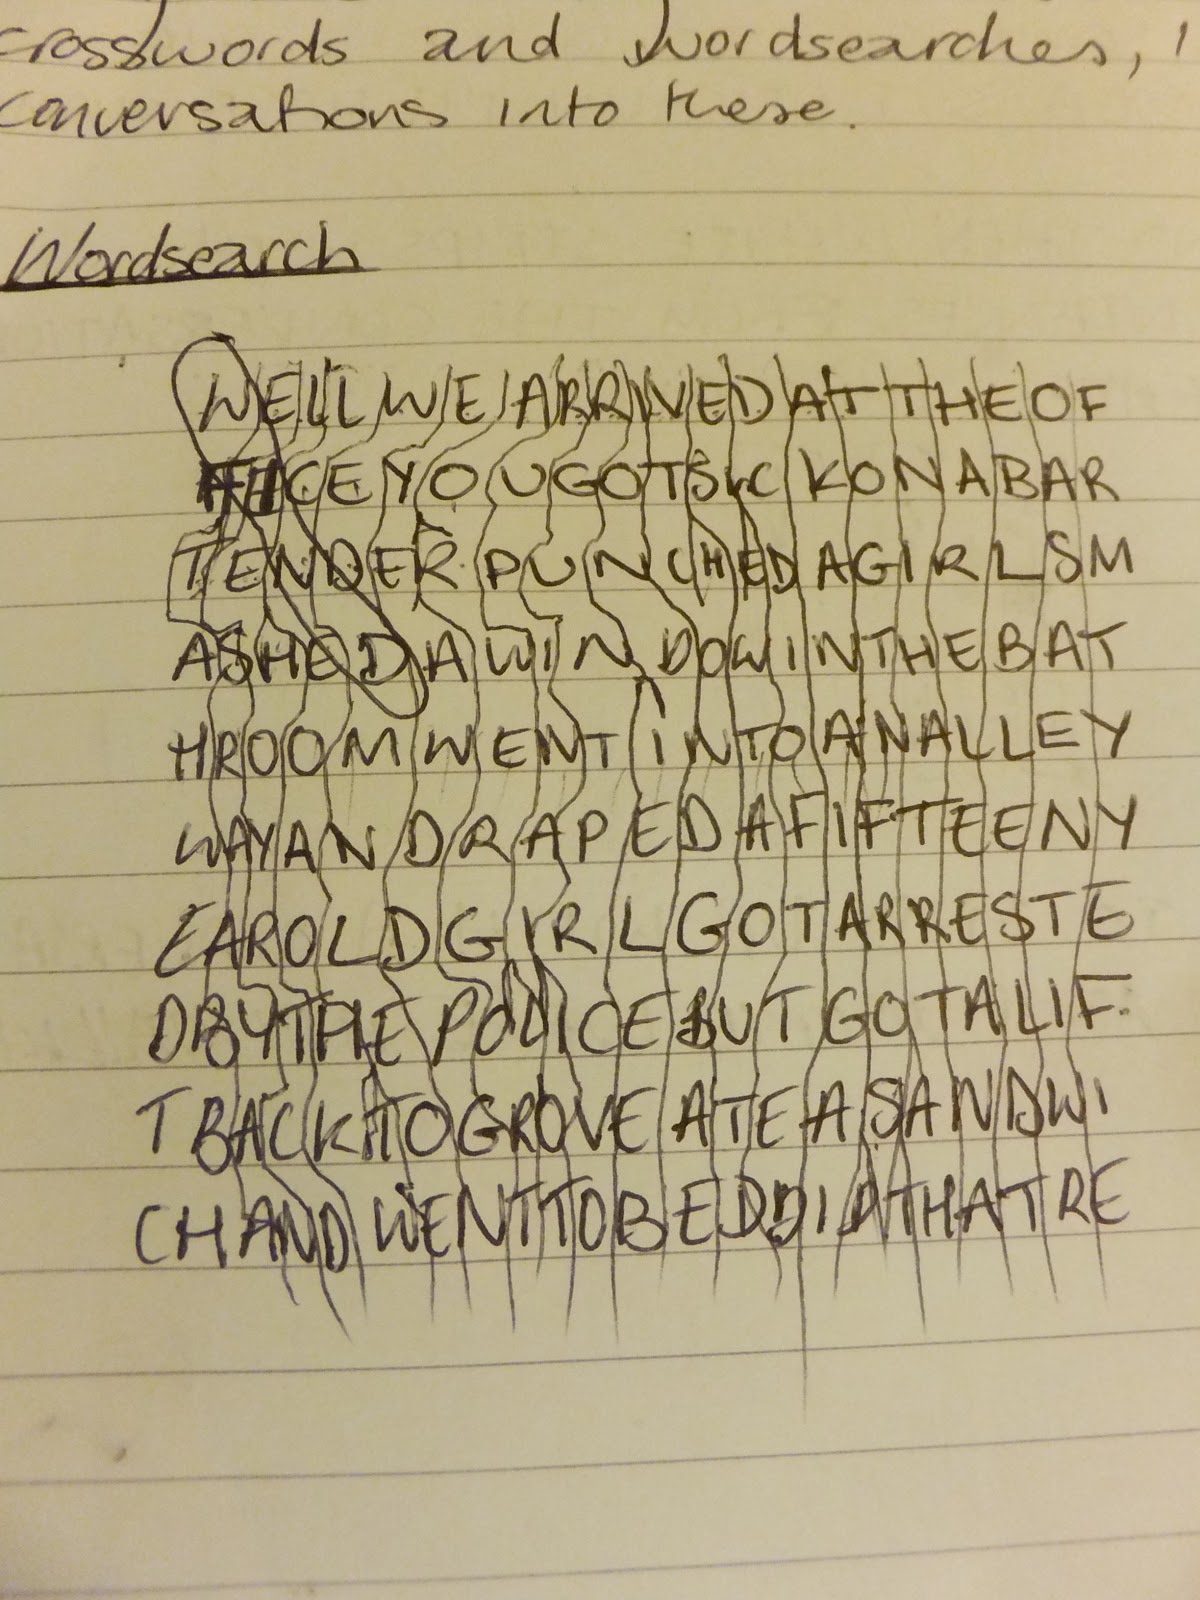 crosswords and wordsearches, I
conversations into these.
Wordsearch
WELLWEARRIVEDATTHEOF
FICEYOUGOTSICKONABAR
TENDERPUNCHEDAGIRLSM
ASHEDAWINDOWINTHEBAT
HROOMWENTINTOANALLEY
WAYANDRAPEDAFIFTEENY
EAROLDGIRLGOTARRESTE
DBYTHEPOLICEBUTGOTALIF
TBACKTOGROVEATEASANDWI
CHANDWENTTOBEDDIDTHATRE